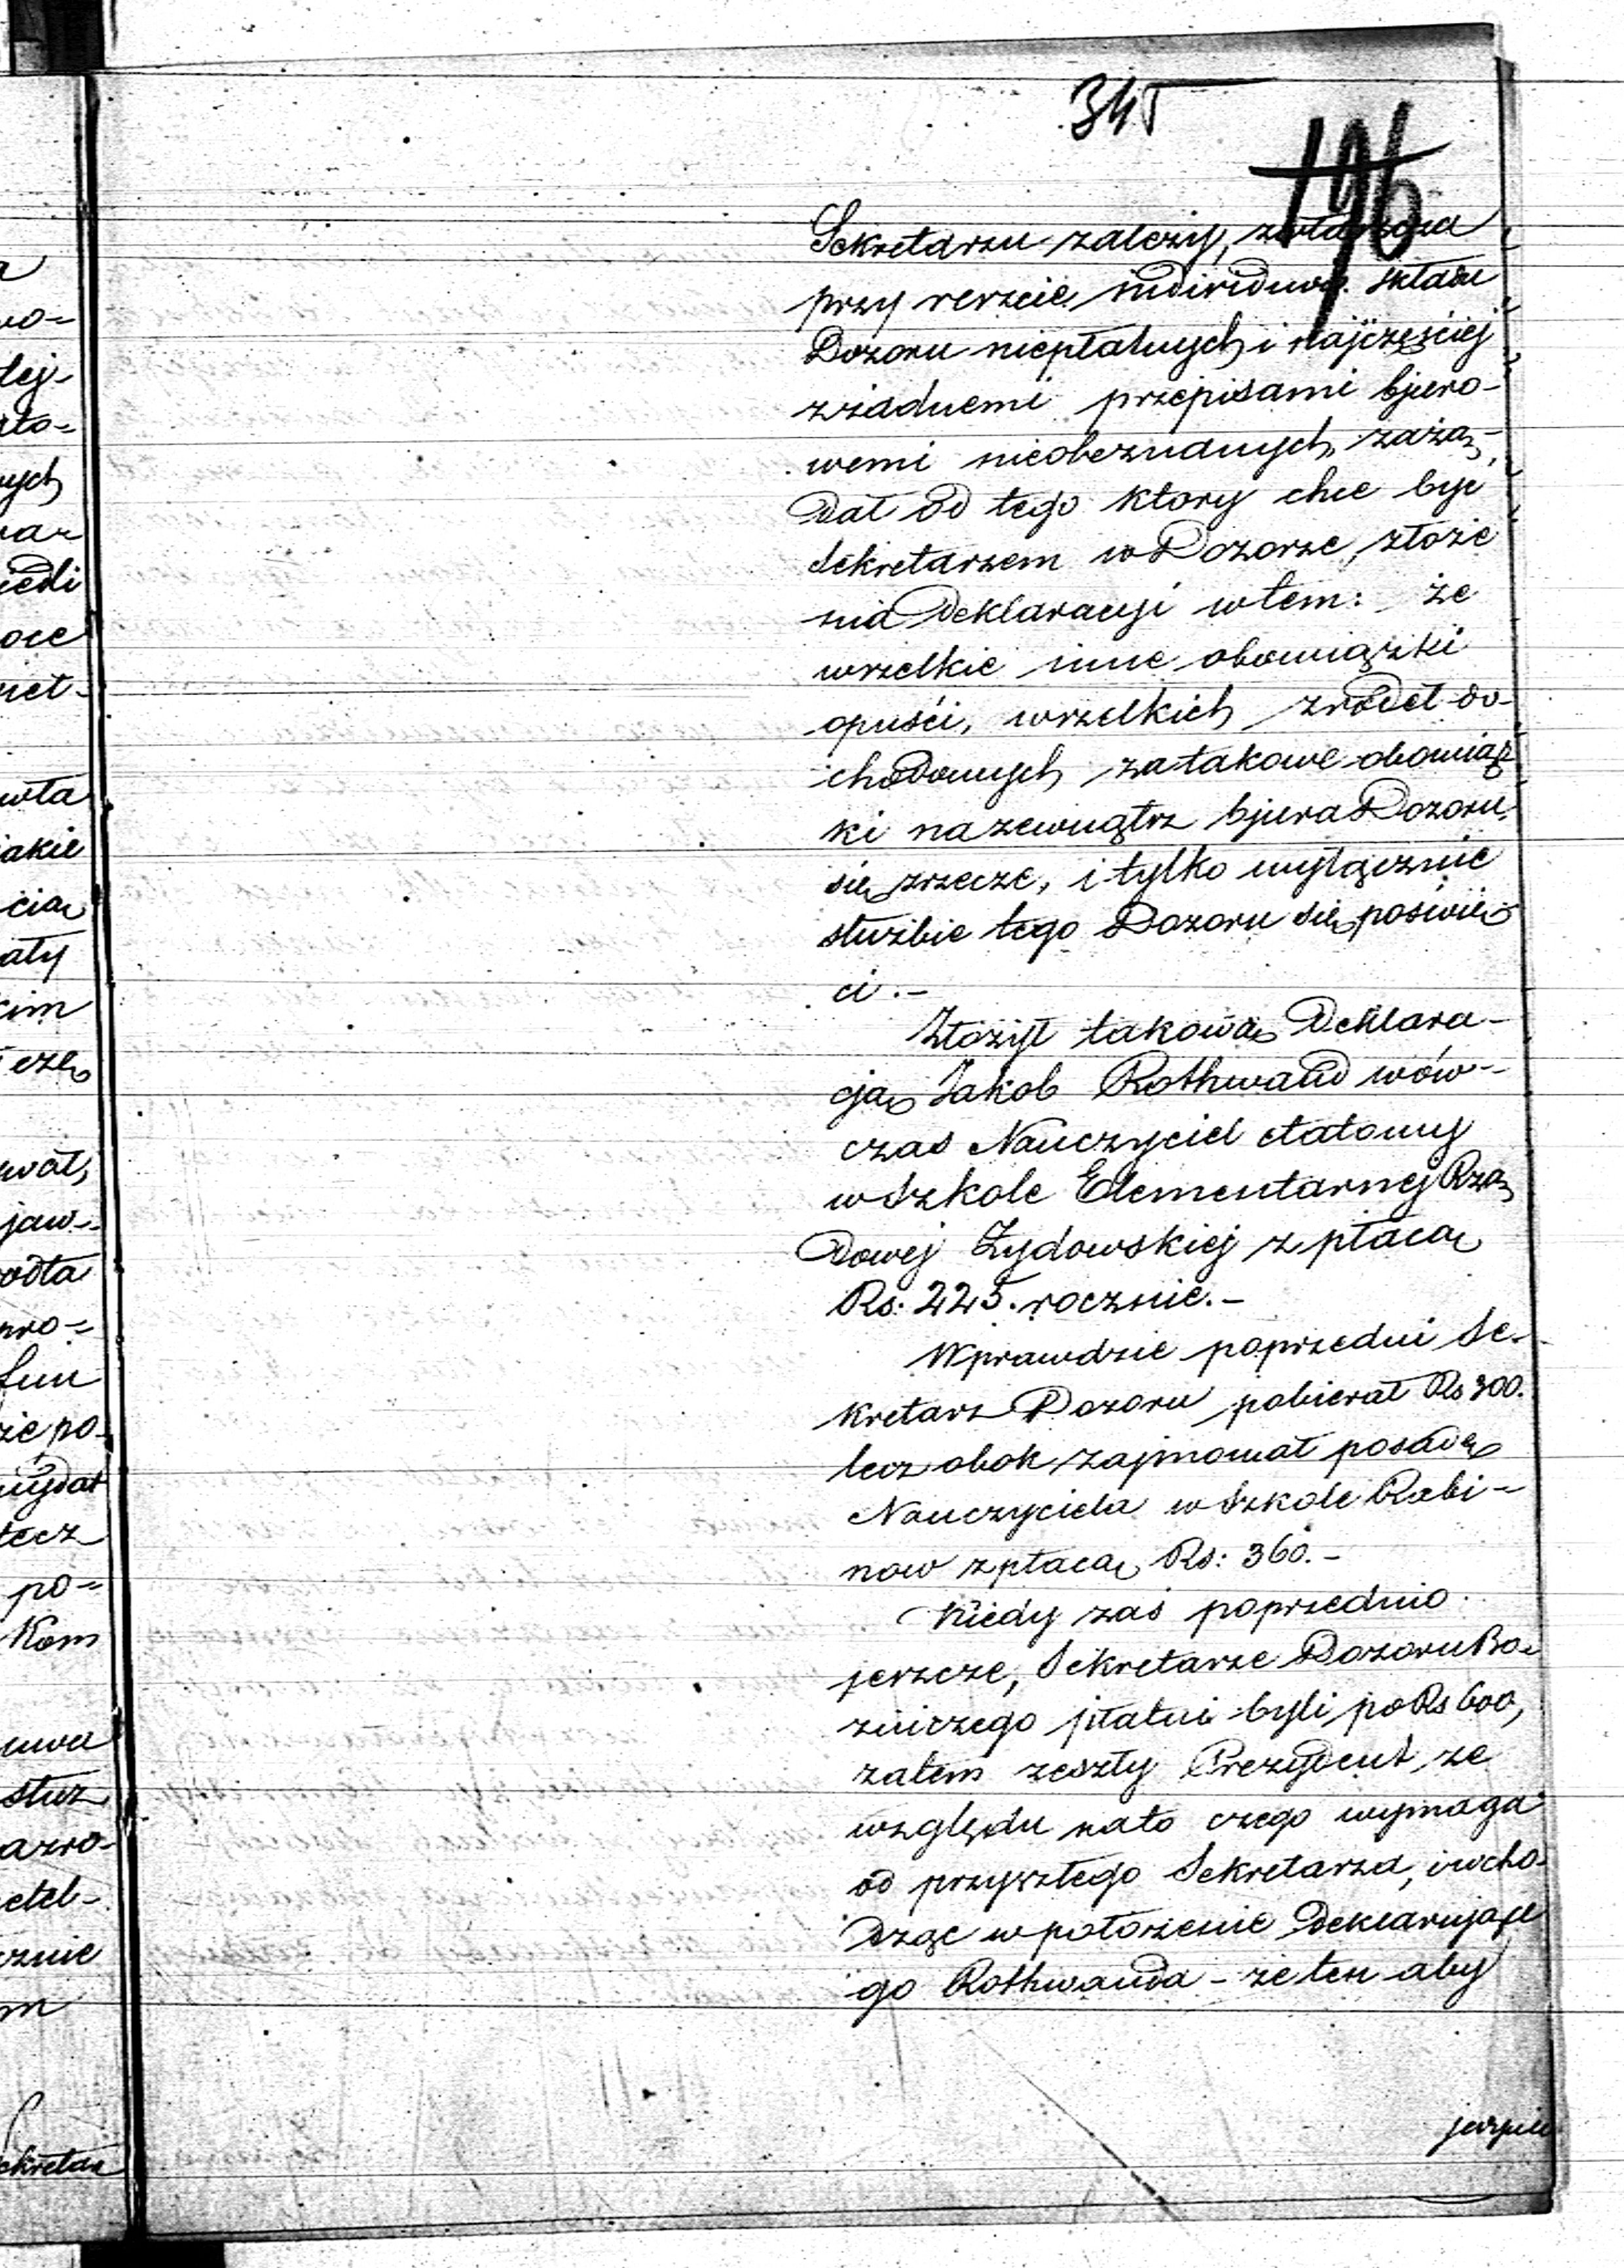 345
196
Sekretarzu zależy, zwłaszcza
przy reszcie indiwiduów składu
Dozoru niepłatnych i najczęściej
zżadnemi przepisami bjuro-
wemi nieobeznanych, zażą-
dał od tego ktory chce być
Sekretarzem w Dozorze, złoże
nia Deklaracyi wtem: że
wszelkie inne obowiązki
opuści, wszelkich zrodeł do-
chodowych za takowe obowiąz
ki nazewnątrz bjura Dozoru
się zrzecze, i tylko wyłącznie
służbie tego Dozoru się poświę
ci.-
Złożył takową Deklara-
cją Jakob Rothwand wów-
czas Nauczyciel etatowy
w Szkole Elementarnej Rzą
dowej Żydowskiej z płacą
Rs: 225. rocznie.-
Wprawdzie poprzedni Se-
kretarz Dozoru pobierał Rs 300.
lecz obok zajmował posadę
Nauczyciela w Szkole Rabi-
now z płacą Rs: 360.-
Kiedy zaś poprzednio
jeszcze, Sekretarze Dozoru Bo-
zniczego płatni byli po Rs 600,
zatem zeszły Prezydent ze
względu nato czego wymaga
od przyszłego Sekretarza, i wcho-
dząc w położenie Deklarujące
go Rothwanda - że ten aby
a
wo-
lej-
ych
iedli
akie
cią
ały
kim
czę
wał,
jaw-
odła
pro-
fun
zie po-
wydał
lecz
po-
Kom
służ
znie
m
ekretar